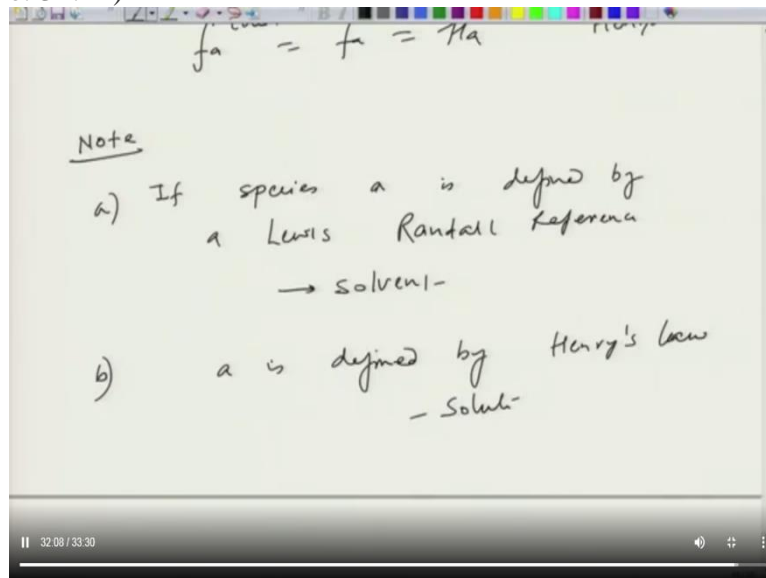 fa = fa = Ha
Note
a) If species a is defined by
a Lewis Randall Reference
→ solvent
b) a is defined by Henry's law
- Solute
32:08 / 33:30